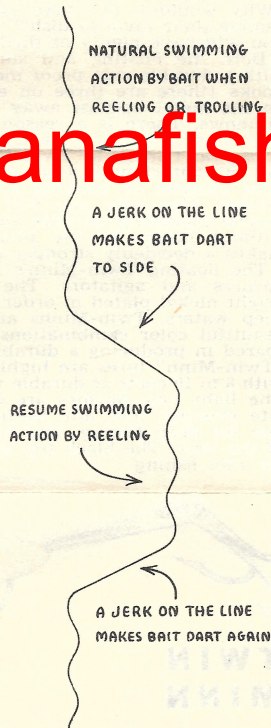 NATURAL SWIMMING
ACTION BY BAIT WHEN
REELING OR TROLLING
anafish
A JERK ON THE LINE
MAKES BAIT DART
TO SIDE
RESUME SWIMMING
ACTION BY REELING
A JERK ON THE LINE
MAKES BAIT DART AGAIN